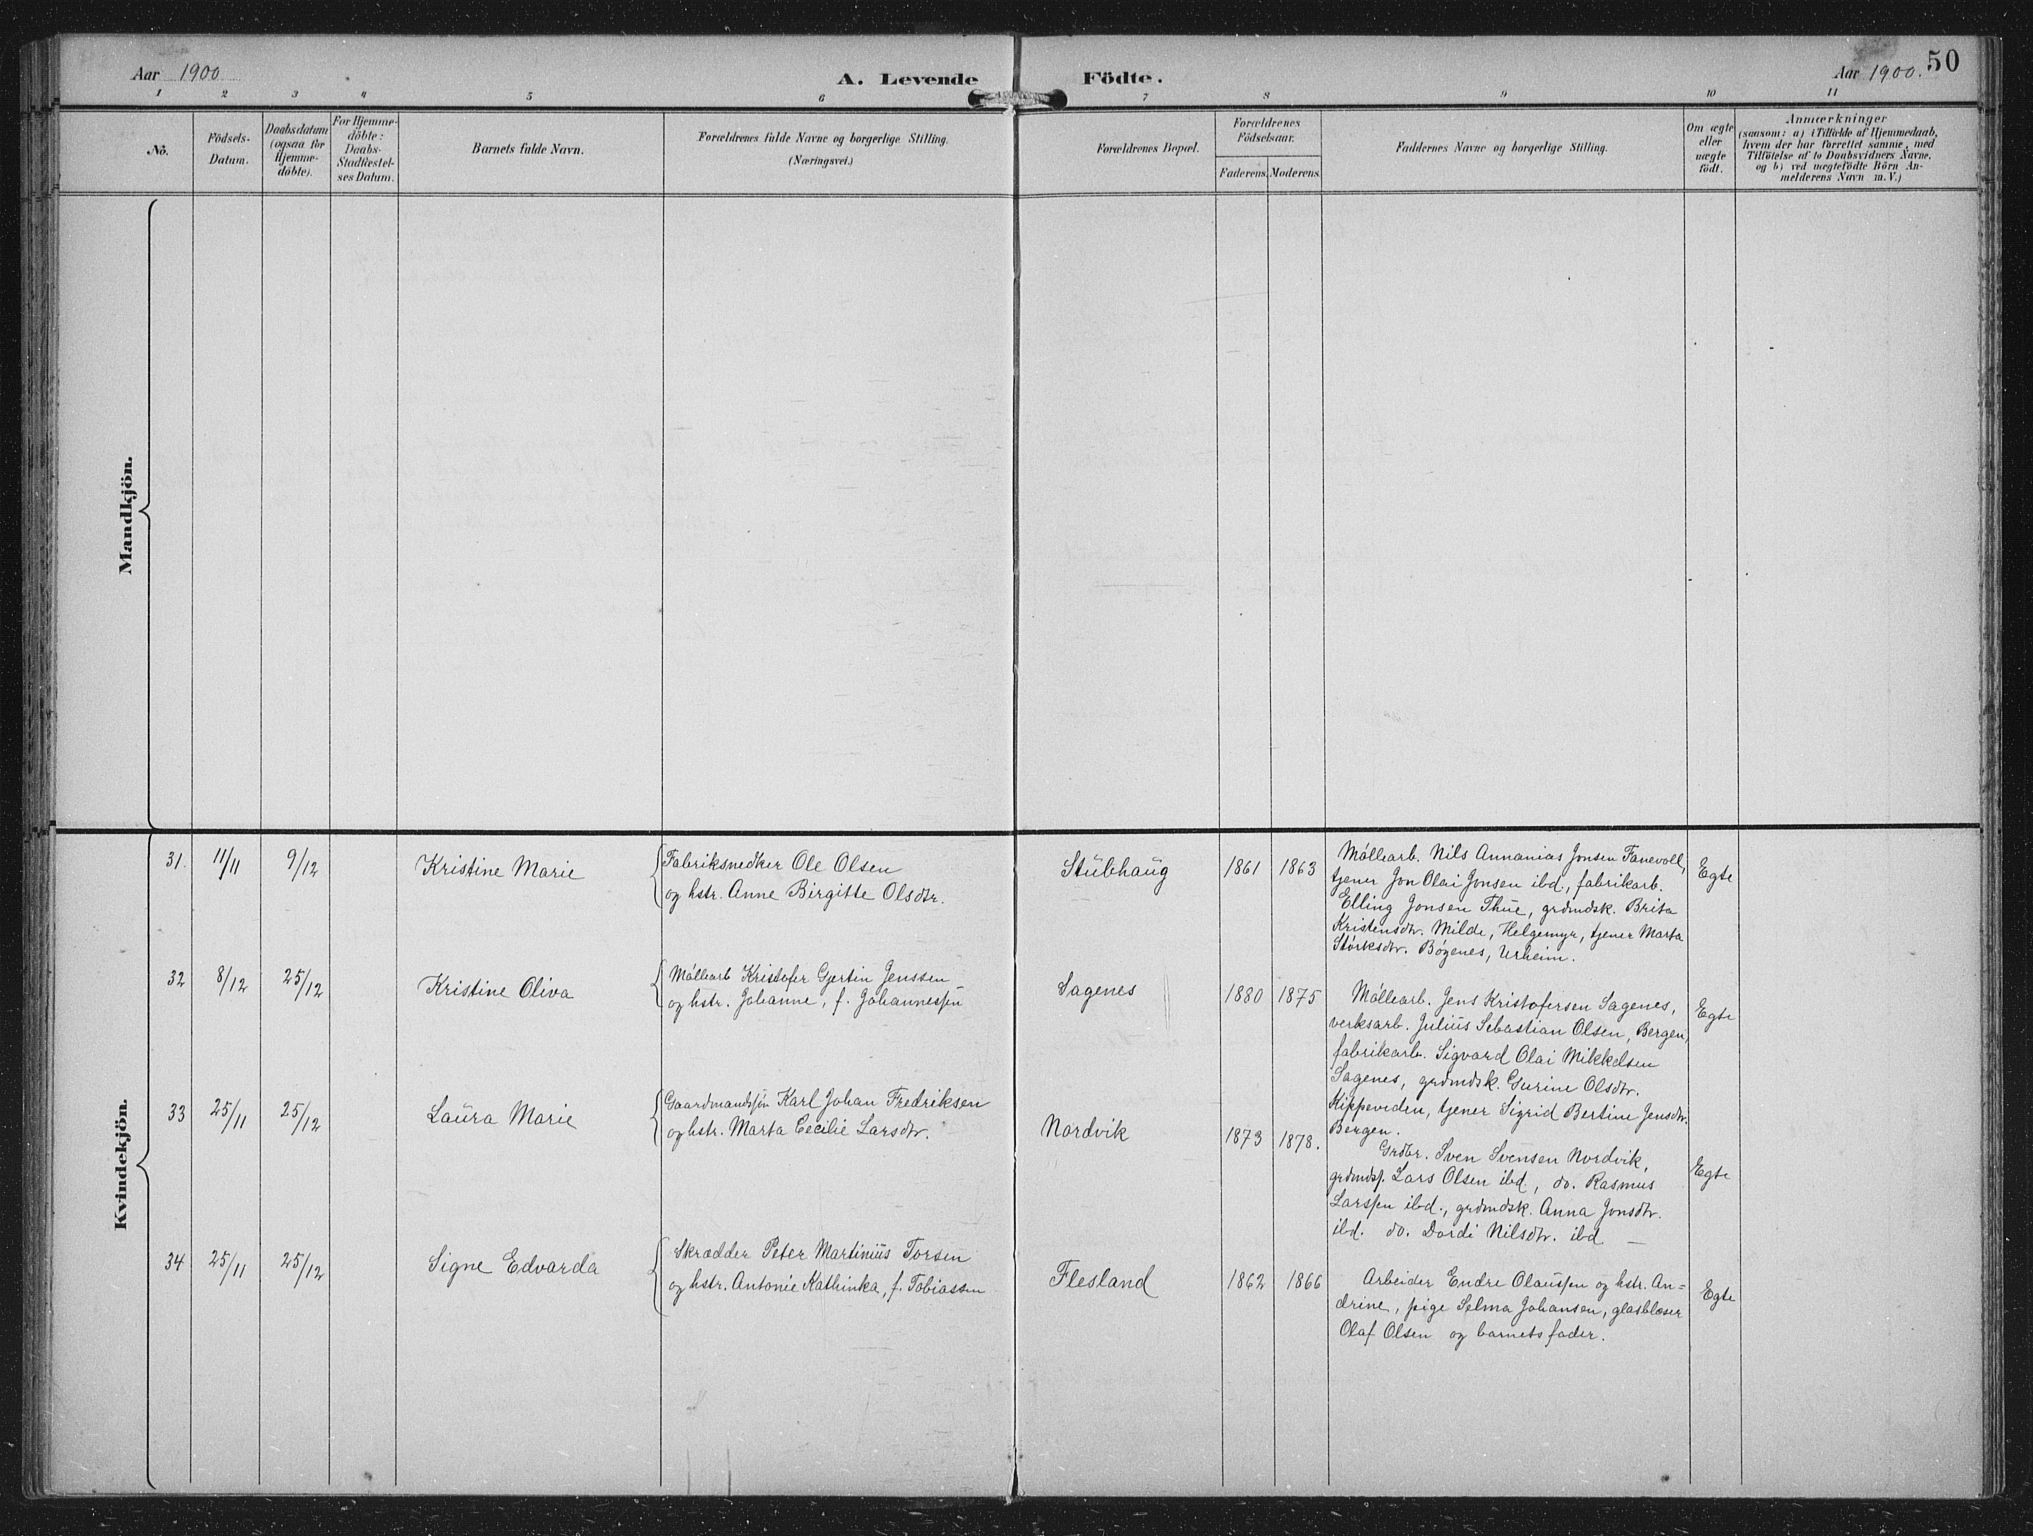 Aar 1900
A. Levende Födte.
Aar 1900.
50
1 2 3 4 5 6 7 8 9 10 11
No.
Födsels-
Datum.
Daabsdatum
(ogsaa for
Hjemme-
döbte).
For Hjemme-
döbte:
Daabs-
Stadfæstel-
ses Datum.
Barnets fulde Navn.
Forældrenes fulde Navne og borgerlige Stilling.
(Næringsvei.)
Forældrenes Bopæl.
Forældrenes
Födselsaar.
Faderens. Moderens.
Faddernes Navne og borgerlige Stilling.
Om ægte
eller
uægte
födt.
Anmærkninger
(saasom: a) i Tilfælde af Hjemmedaab,
hvem der har forrettet samme, med
Tilföielse af to Daabsvidners Navne,
og b) ved uægtefödte Börn An-
melderens Navn m. V.)
Mandkjön.
Kvindekjön.
31. 11/11 9/12 Kristine Marie
Fabriksnedker Ole Olsen
og hstr. Anne Birgitte Olsdtr.
Stubhaug 1861 1863
Møllearb. Nils Annanias Jonsen Fanevoll,
tjener Jon Olai Jonsen ibd., fabrikarb.
Elling Jonsen Thue, grdmdsk. Brita
Kristensdtr. Milde, Helgemyr, tjener Marta
Størksdtr. Bøgenes, Urheim.
Egte
32 8/12 25/12 Kristine Oliva
Møllearb Kristofer Gjertin Jenssen
og hstr. Johanne, f. Johannessen
Sagenes 1880 1875
Møllearb. Jens Kristofersen Sagenes,
verksarb. Julius Sebastian Olsen, Bergen,
fabrikarb. Sigvard Olai Mikkelsen
Sagenes, grdmdsk. Gurine Olsdtr.
Kippeviden, tjener Sigrid Bertine Jensdtr.
Bergen.
Egte
33 25/11 25/12 Laura Marie
Gaardmandssøn Karl Johan Fredriksen
og hstr. Marta Cecilie Larsdtr.
Nordvik 1873 1878.
Grdbr. Sven Svensen Nordvik,
grdmds. Lars Olsen ibd, do. Rasmus
Larssen ibd., grdmdsk. Anna Jonsdtr.
ibd. do. Dordi Nilsdtr. ibd —
Egte
34 25/11 25/12 Signe Edvarda
Skrædder Peter Martinius Torsen
og hstr. Antonie Kathinka, f. Tobiassen
Flesland 1862 1866
Arbeider Endre Olaussen og hstr. An=
drine, pige Selma Johansen, glasblæser
Olaf Olsen og barnets fader.
Egte